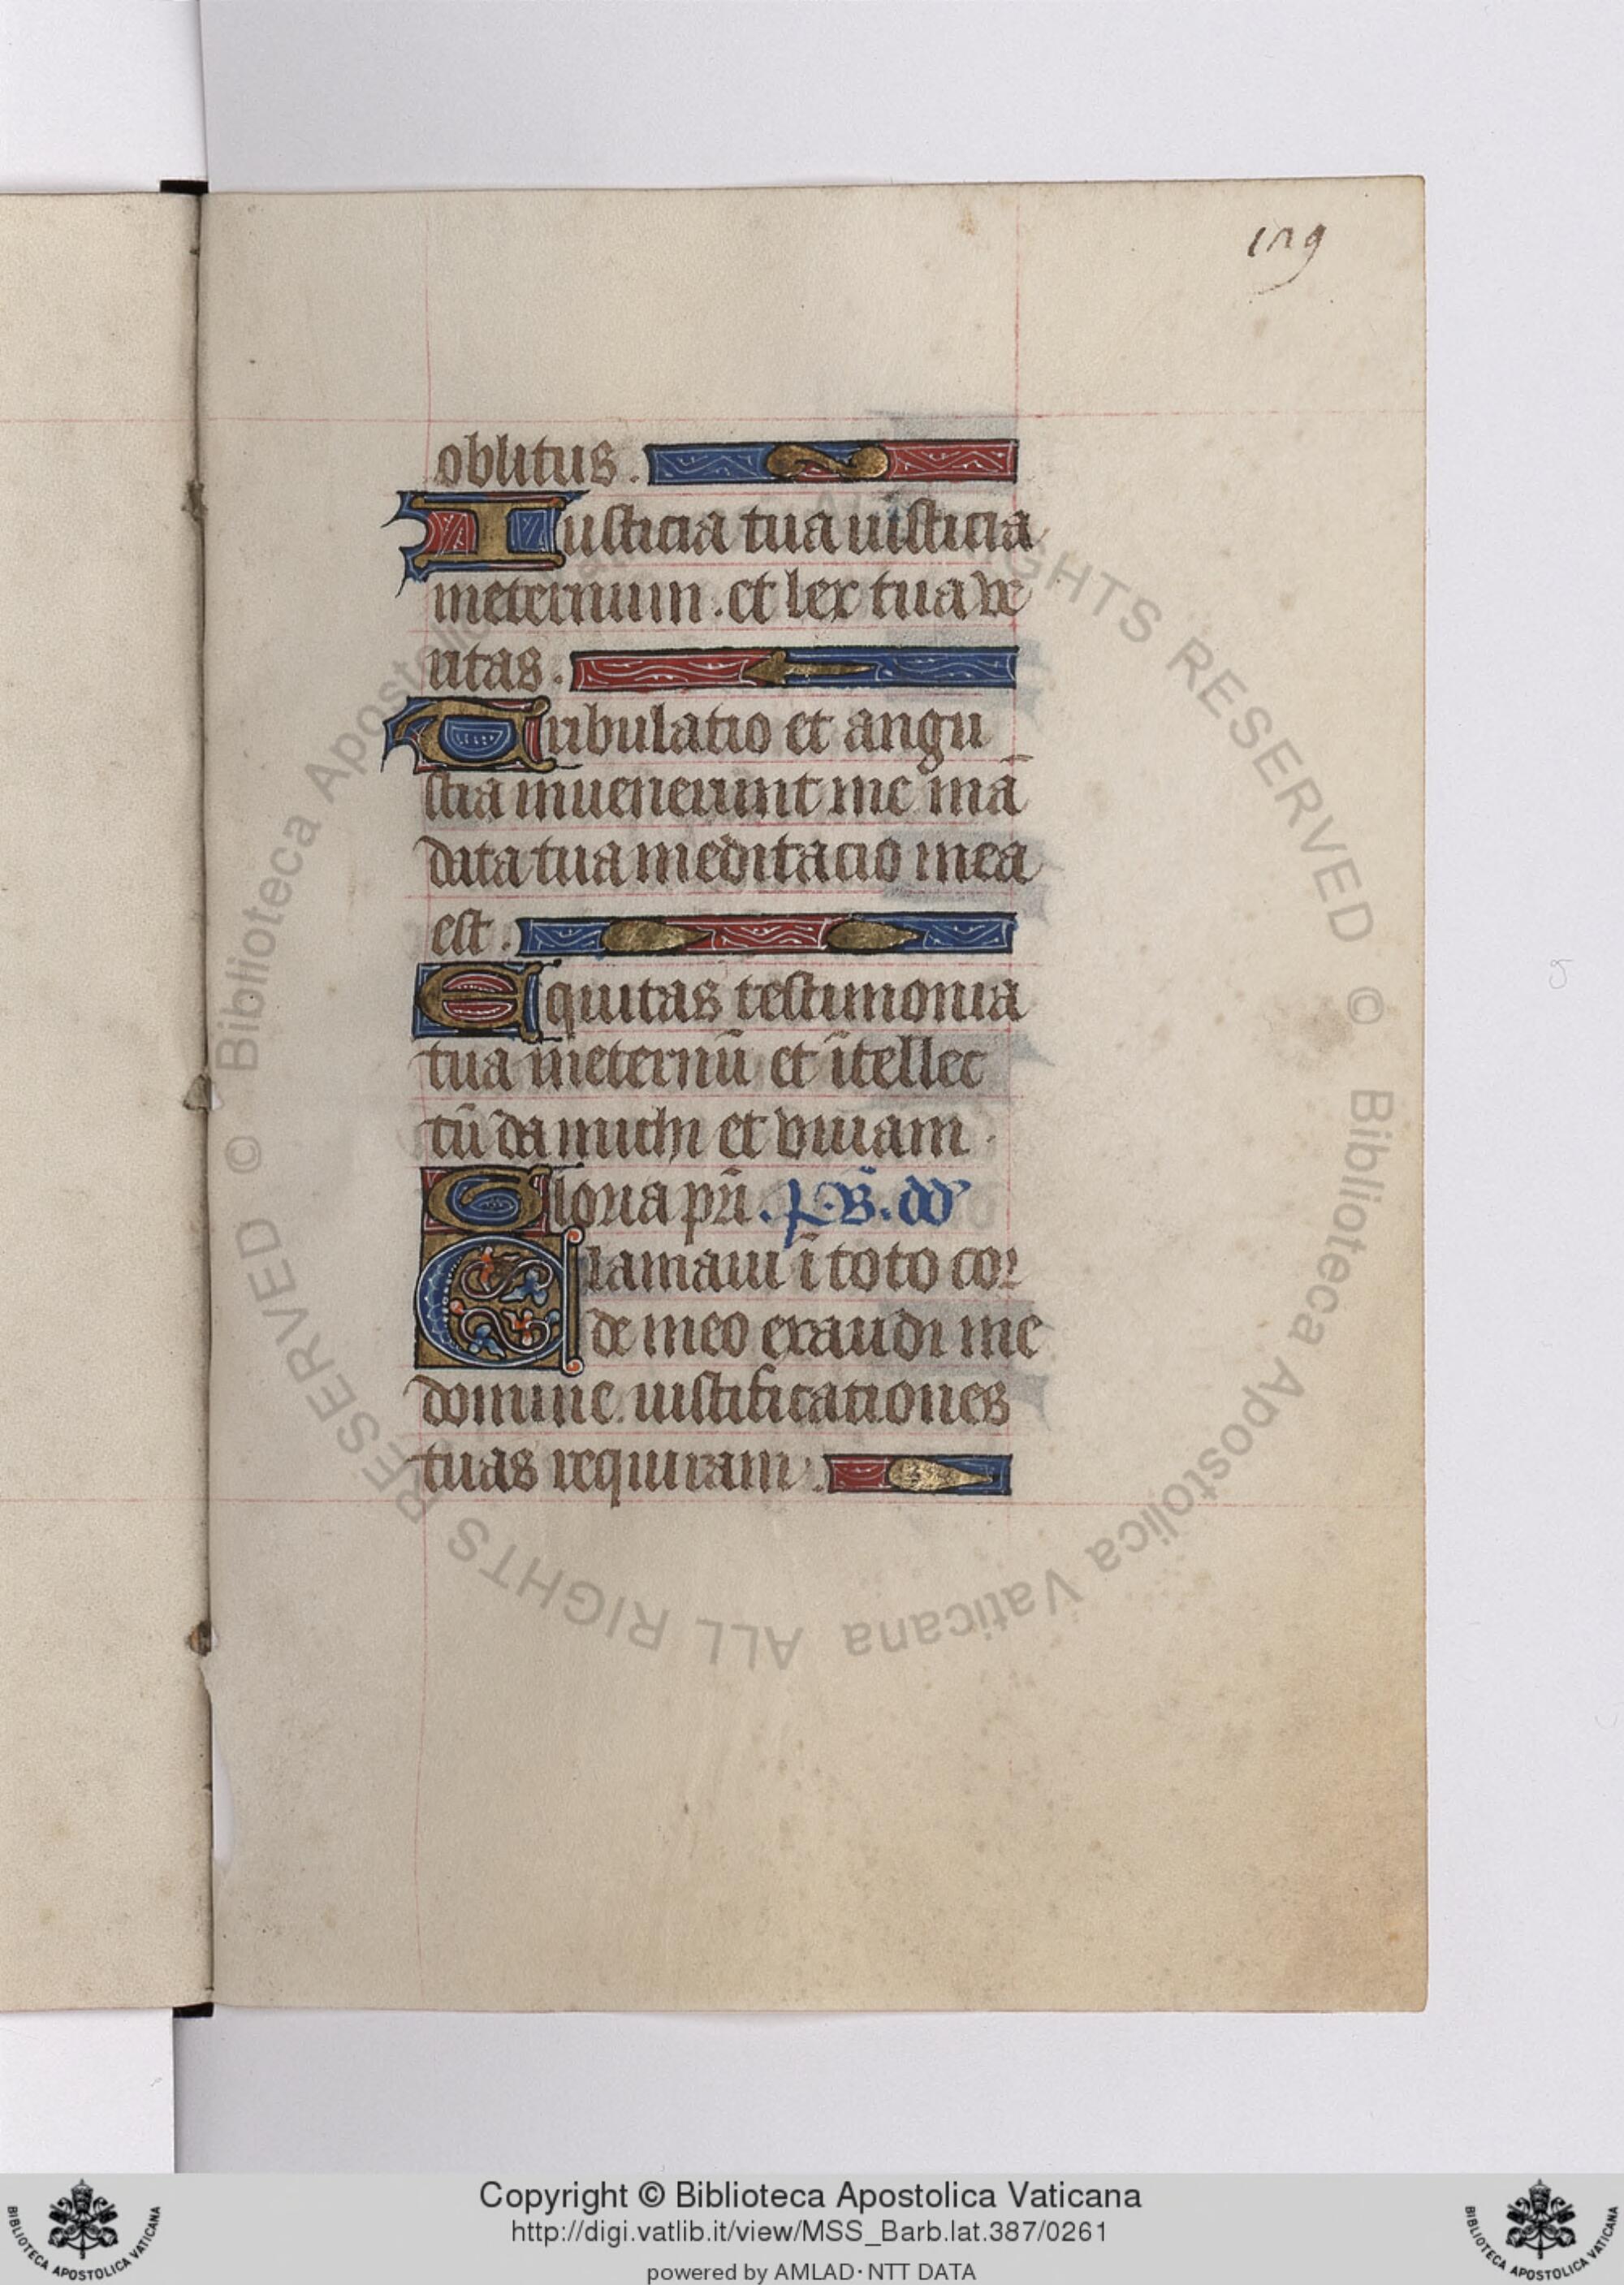 129
oblitus.
Iusticia tua iusticia
ineternum. et lex tua ve
ritas.
Tribulatio et angu
stia inuenerunt me mā
data tua meditacio mea
est.
Equitas testimonia
tua ineternū et ītellec
tū da michi et viuiam.
Gloria pr̄i. P.S. dd
Clamaui ī toto cor
de meo exaudi me
domine. iustificationes
tuas requiram.
© Biblioteca Apostolica Vaticana ALL RIGHTS RESERVED © Biblioteca Apostolica Vaticana ALL RIGHTS RESERVED
Copyright © Biblioteca Apostolica Vaticana
http://digi.vatlib.it/view/MSS_Barb.lat.387/0261
powered by AMLAD·NTT DATA
BIBLIOTECA APOSTOLICA VATICANA
BIBLIOTECA APOSTOLICA VATICANA